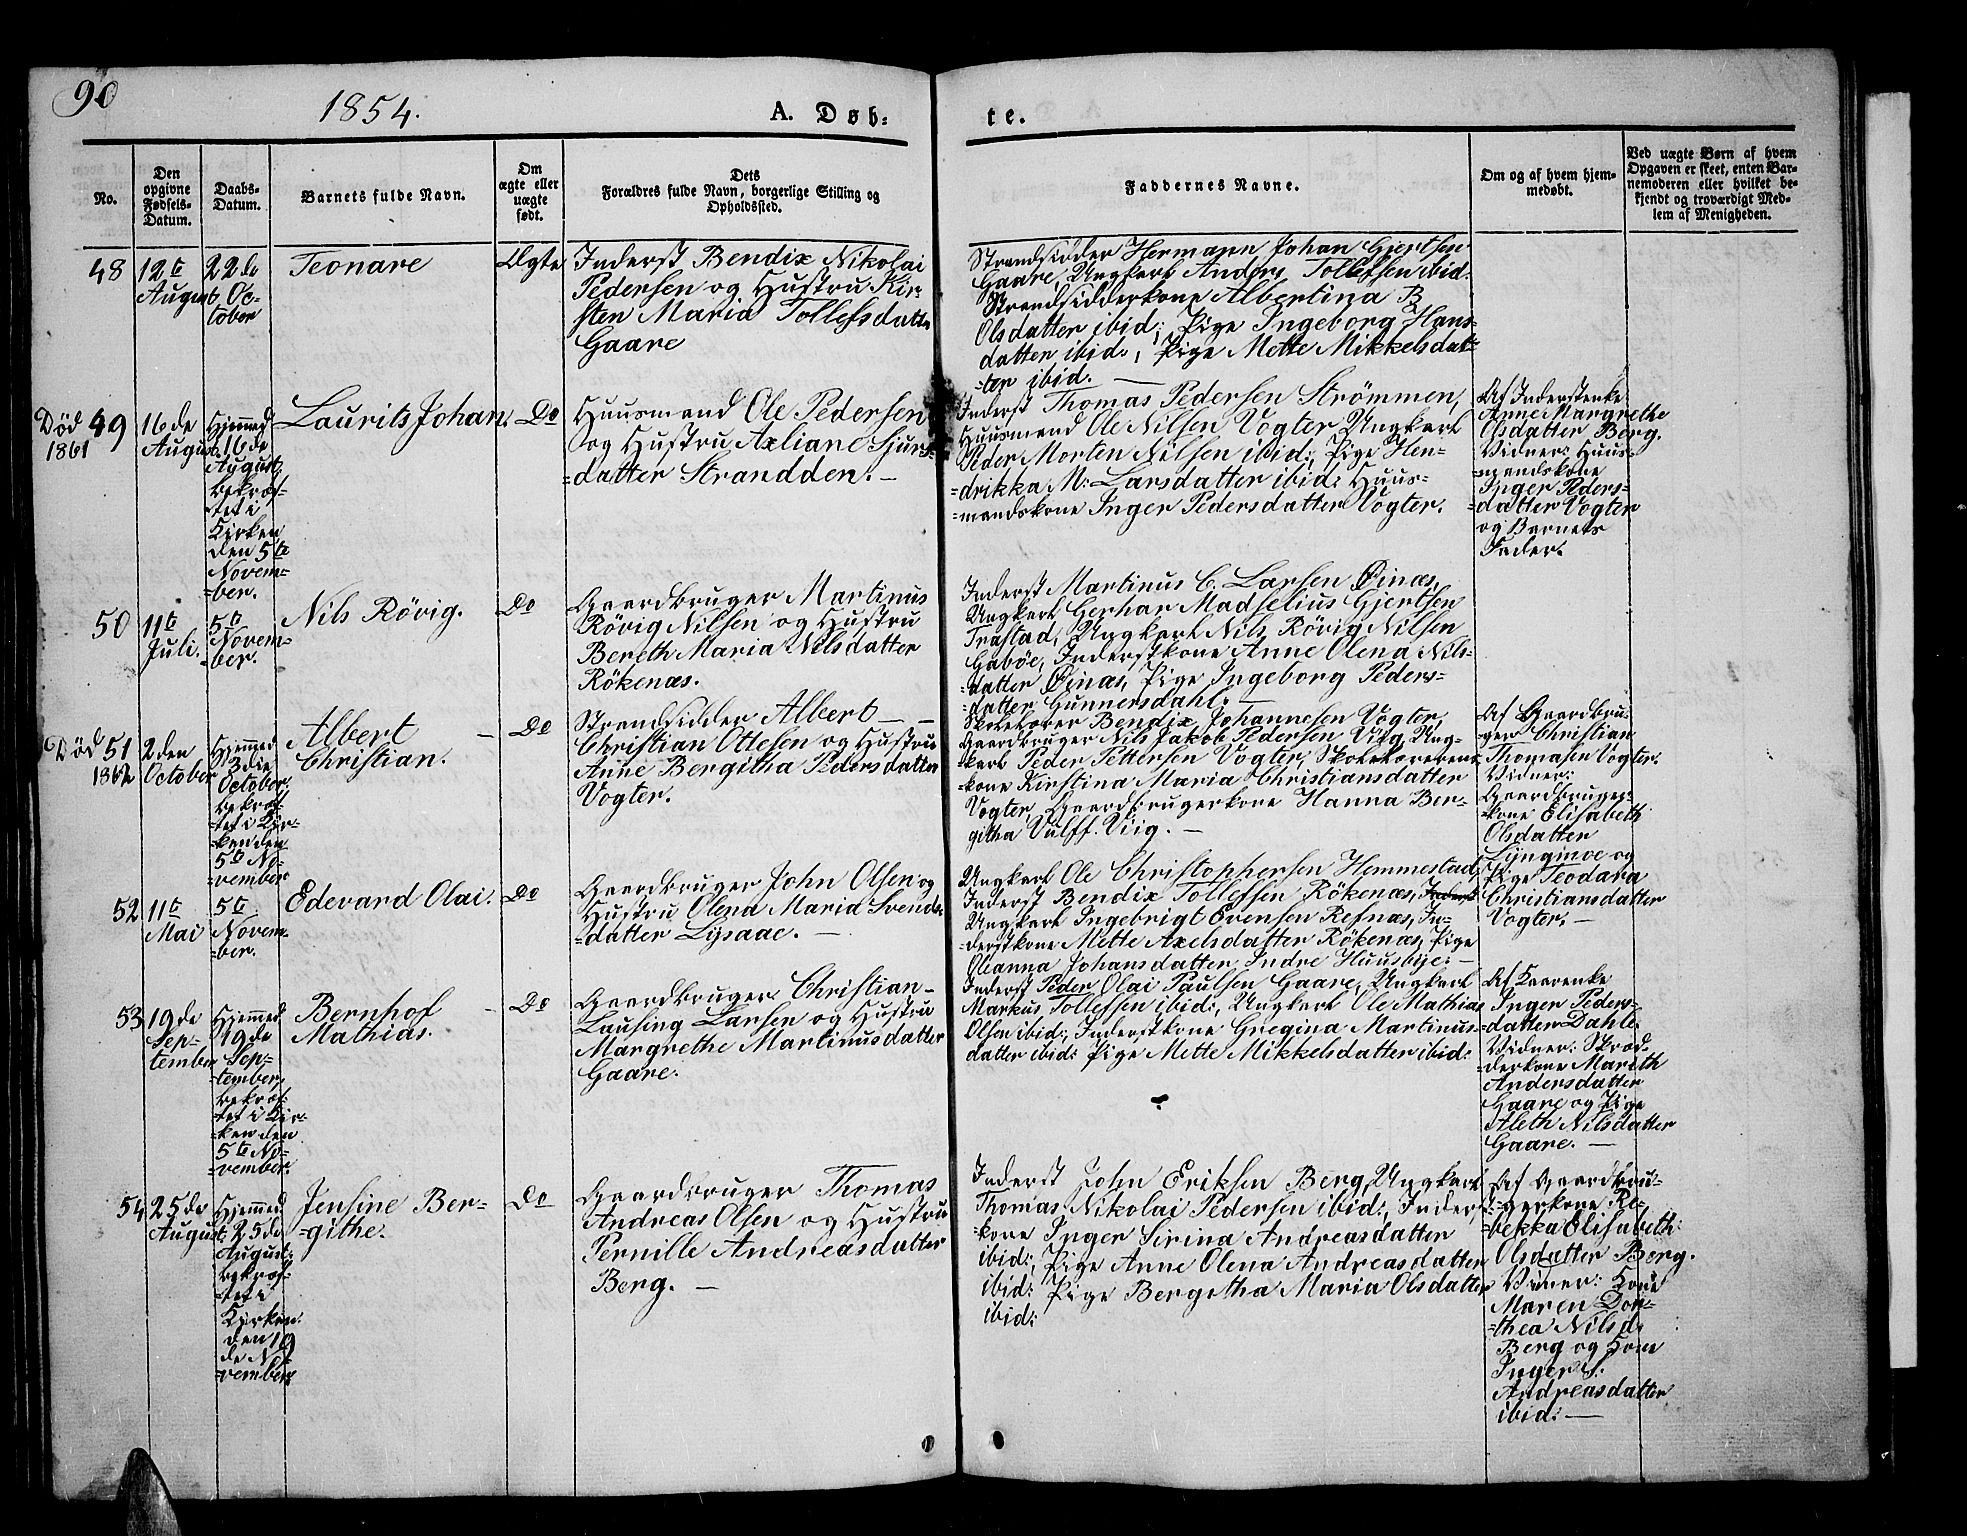 90
1854.
A. Døb-
te.
No.
Den
opgivne
Fødsels-
Datum.
Daabs-
Datum.
Barnets fulde Navn.
Om
ægte eller
uægte
født.
Dets
Forældres fulde Navn, borgerlige Stilling og
Opholdssted.
Faddernes Navne.
Om og af hvem hjem-
medøbt.
Ved uægte Børn af hvem
Opgaven er skeet, enten Bar-
nemoderen eller hvilket be-
kjendt og troværdigt Med-
lem af Menigheden.
48
12te
August
22de
Oc-
tober
Teonare
Ægte
Inderst Bendix Nikolai
Pedersen og Hustru Kir-
sten Maria Tollefsdatter
Gaare
Strandsidder Hermann Johan Gjertsen
Gaare, Ungkarl Anders Tollefsen ibid.
Strandsidderkone Albertina B
Olsdatter ibid:, Pige Ingeborg Hans-
datter ibid:, Pige Mette Mikkelsdat-
=ter ibid. —
Død 49
1861
16de
August
Hjemmed
16de
August,
bekræf-
tet i
Kirken
den 5te
Novem-
=ber.
Laurits Johan.
Do
Huusmand Ole Pedersen
og Hustru Axliane Sjurs-
=datter Strandden. —
Inderst Thomas Pedersen Strömmen,
Huusmand Ole Nilsen Vogter Ungkarl
Peder Morten Nilsen ibid:, Pige Hen-
=drikka M: Larsdatter ibid: Huus-
=mandskone Inger Pedersdatter Vogter.
Af Inderstenke
Anne Margrethe
Olsdatter Berg.
Vidner: Huus-
=mandskone
Inger Peders-
=datter Vogter
og Barnets
Fader.
50
11te
Juli.
5te
Novem-
=ber.
Nils Rövig.
Do
Gaardbruger Martinus
Rövig Nilsen og Hustru
Bereth Maria Nilsdatter
Rökenæs.
Inderst Martinus C. Larsen Øinæs,
Ungkarl Gerhar Madselius Gjertsen
Trastad, Ungkarl Nils Rövig Nilsen
Gaböe, Inderstkone Anne Olena Nils-
=datter Øinæs, Pige Ingeborg Peders-
=datter Gunnersdahl. —
Død 51
1862
2den
October
Hjemmed
3die
October,
bekræf-
=tet i Kir-
=ken den
5te No-
=vember
Albert —
Christian.
Do
Strandsidder Albert — —
Christian Ottesen og Hustru
Anne Bergitha Pedersdatter
Vogter.
Skolelærer Bendix Johannesen Vogter,
Gaardbruger Nils Jakob Pedersen Viig, Ung-
karl Peder Pettersen Vogter, Skolelærerens
kone Kirstina Maria Christiansdatter
Vogter, Gaardbrugerkone Hanna Ber-
githa Vulff. Viig. —
Af Gaardbru-
ger Christian
Thomasen Vogter.
Vidner:
Gaardbruger-
=kone Elisabeth
Olsdatter
Lyngmoe og
Pige Teodara
Christiansdatter
Vogter. —
52
11te
Mai
5te
Novem-
=ber.
Edevard Olai.
Do
Gaardbruger John Olsen og
Hustru Olena Maria Svends-
=datter Lysaae. —
Ungkarl Ole Christophersen Hemmestad,
Inderst Bendix Tollefsen Rökenæs, Inderst
Ungkarl Ingebrigt Evensen Refsnæs, In-
=derstkone Mette Axelsdatter Rökenæs, Pige
Oleanna Johansdatter Indre Huusbye. —
53
19de
Sep-
tember
Hjemmed
19de
Sep-
=tember,
bekræf-
tet i Kir-
=ken den
5te No-
=vember.
Bernhof —
Mathias.
Do
Gaardbruger Christian —
Lausing Larsen og Hustru
Margrethe Martinusdatter
Gaare.
Inderst Peder Olai Paulsen Gaare, Ungkarl
Markus Tollefsen ibid:, Ungkarl Ole Mathias
Olsen ibid:, Inderstkone Gregina Martinus-
datter ibid: Pige Mette Mikkelsdatter ibid:
Af Kaarenke
Inger Peders-
=datter Dahle.
Vidner: Skræd-
=derkone Marith
Andersdatter
Gaare og Pige
Aleth Nilsdatter
Gaare. —
54
25de
August
Hjemmed
25de
August:
bekræf-
=tet i
Kirken.
den 19
de No-
=vember
Jensine Ber-
=githe.
Do
Gaardbruger Thomas
Andreas Olsen og Hustru
Pernille Andreasdatter
Berg. —
Inderst John Eriksen Berg, Ungkarl
Thomas Nikolai Pedersen ibid:, Inderst-
=kone Inger Sirina Andreasdatter
ibid:, Pige Anne Olena Andreasdatter
ibid: Pige Bergitha Maria Olsdatter
ibid:
Af Gaardbru-
=gerkone Re-
=bekka Elisabeth:
Olsdatter Berg.
Vidner: Kone
Maren Dor-
=thea Nilsd.
Berg og Kone
Inger S.
Andreasdatter
ibid: —